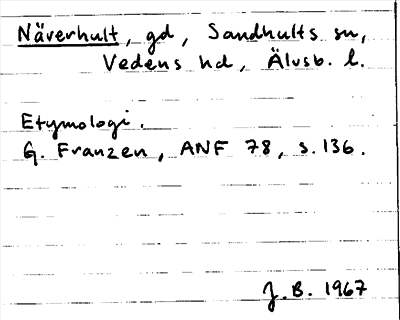 Näverhult, gd, Sandhults sn,
Vedens hd, Älvsb. l.
Etymologi.
G. Franzén, ANF 78, s. 136.
J. B. 1967